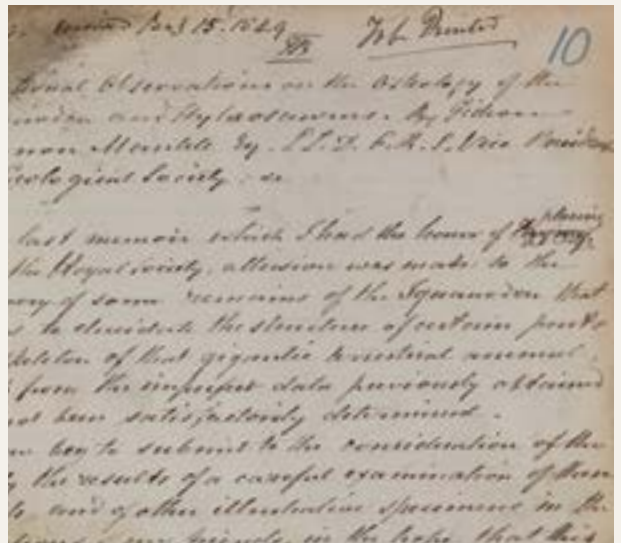 received 15. 1849 10
Observations on the Osteology of the
and Hylaeosaurus. By Gideon
Mantell Esq. L.L.D. F.R.S. Vice
Geological Society &c
last memoir which I had the honor of placing
the Royal Society, allusion was made to the
of some remains of the Iguanodon that
to elucidate the structure of certain parts
of that gigantic terrestrial animal
from the imperfect data previously obtained
not been satisfactorily determined.
beg to submit to the consideration of the
the results of a careful examination of them
and of other illustrative specimens in the
of my friends, in the hope that this